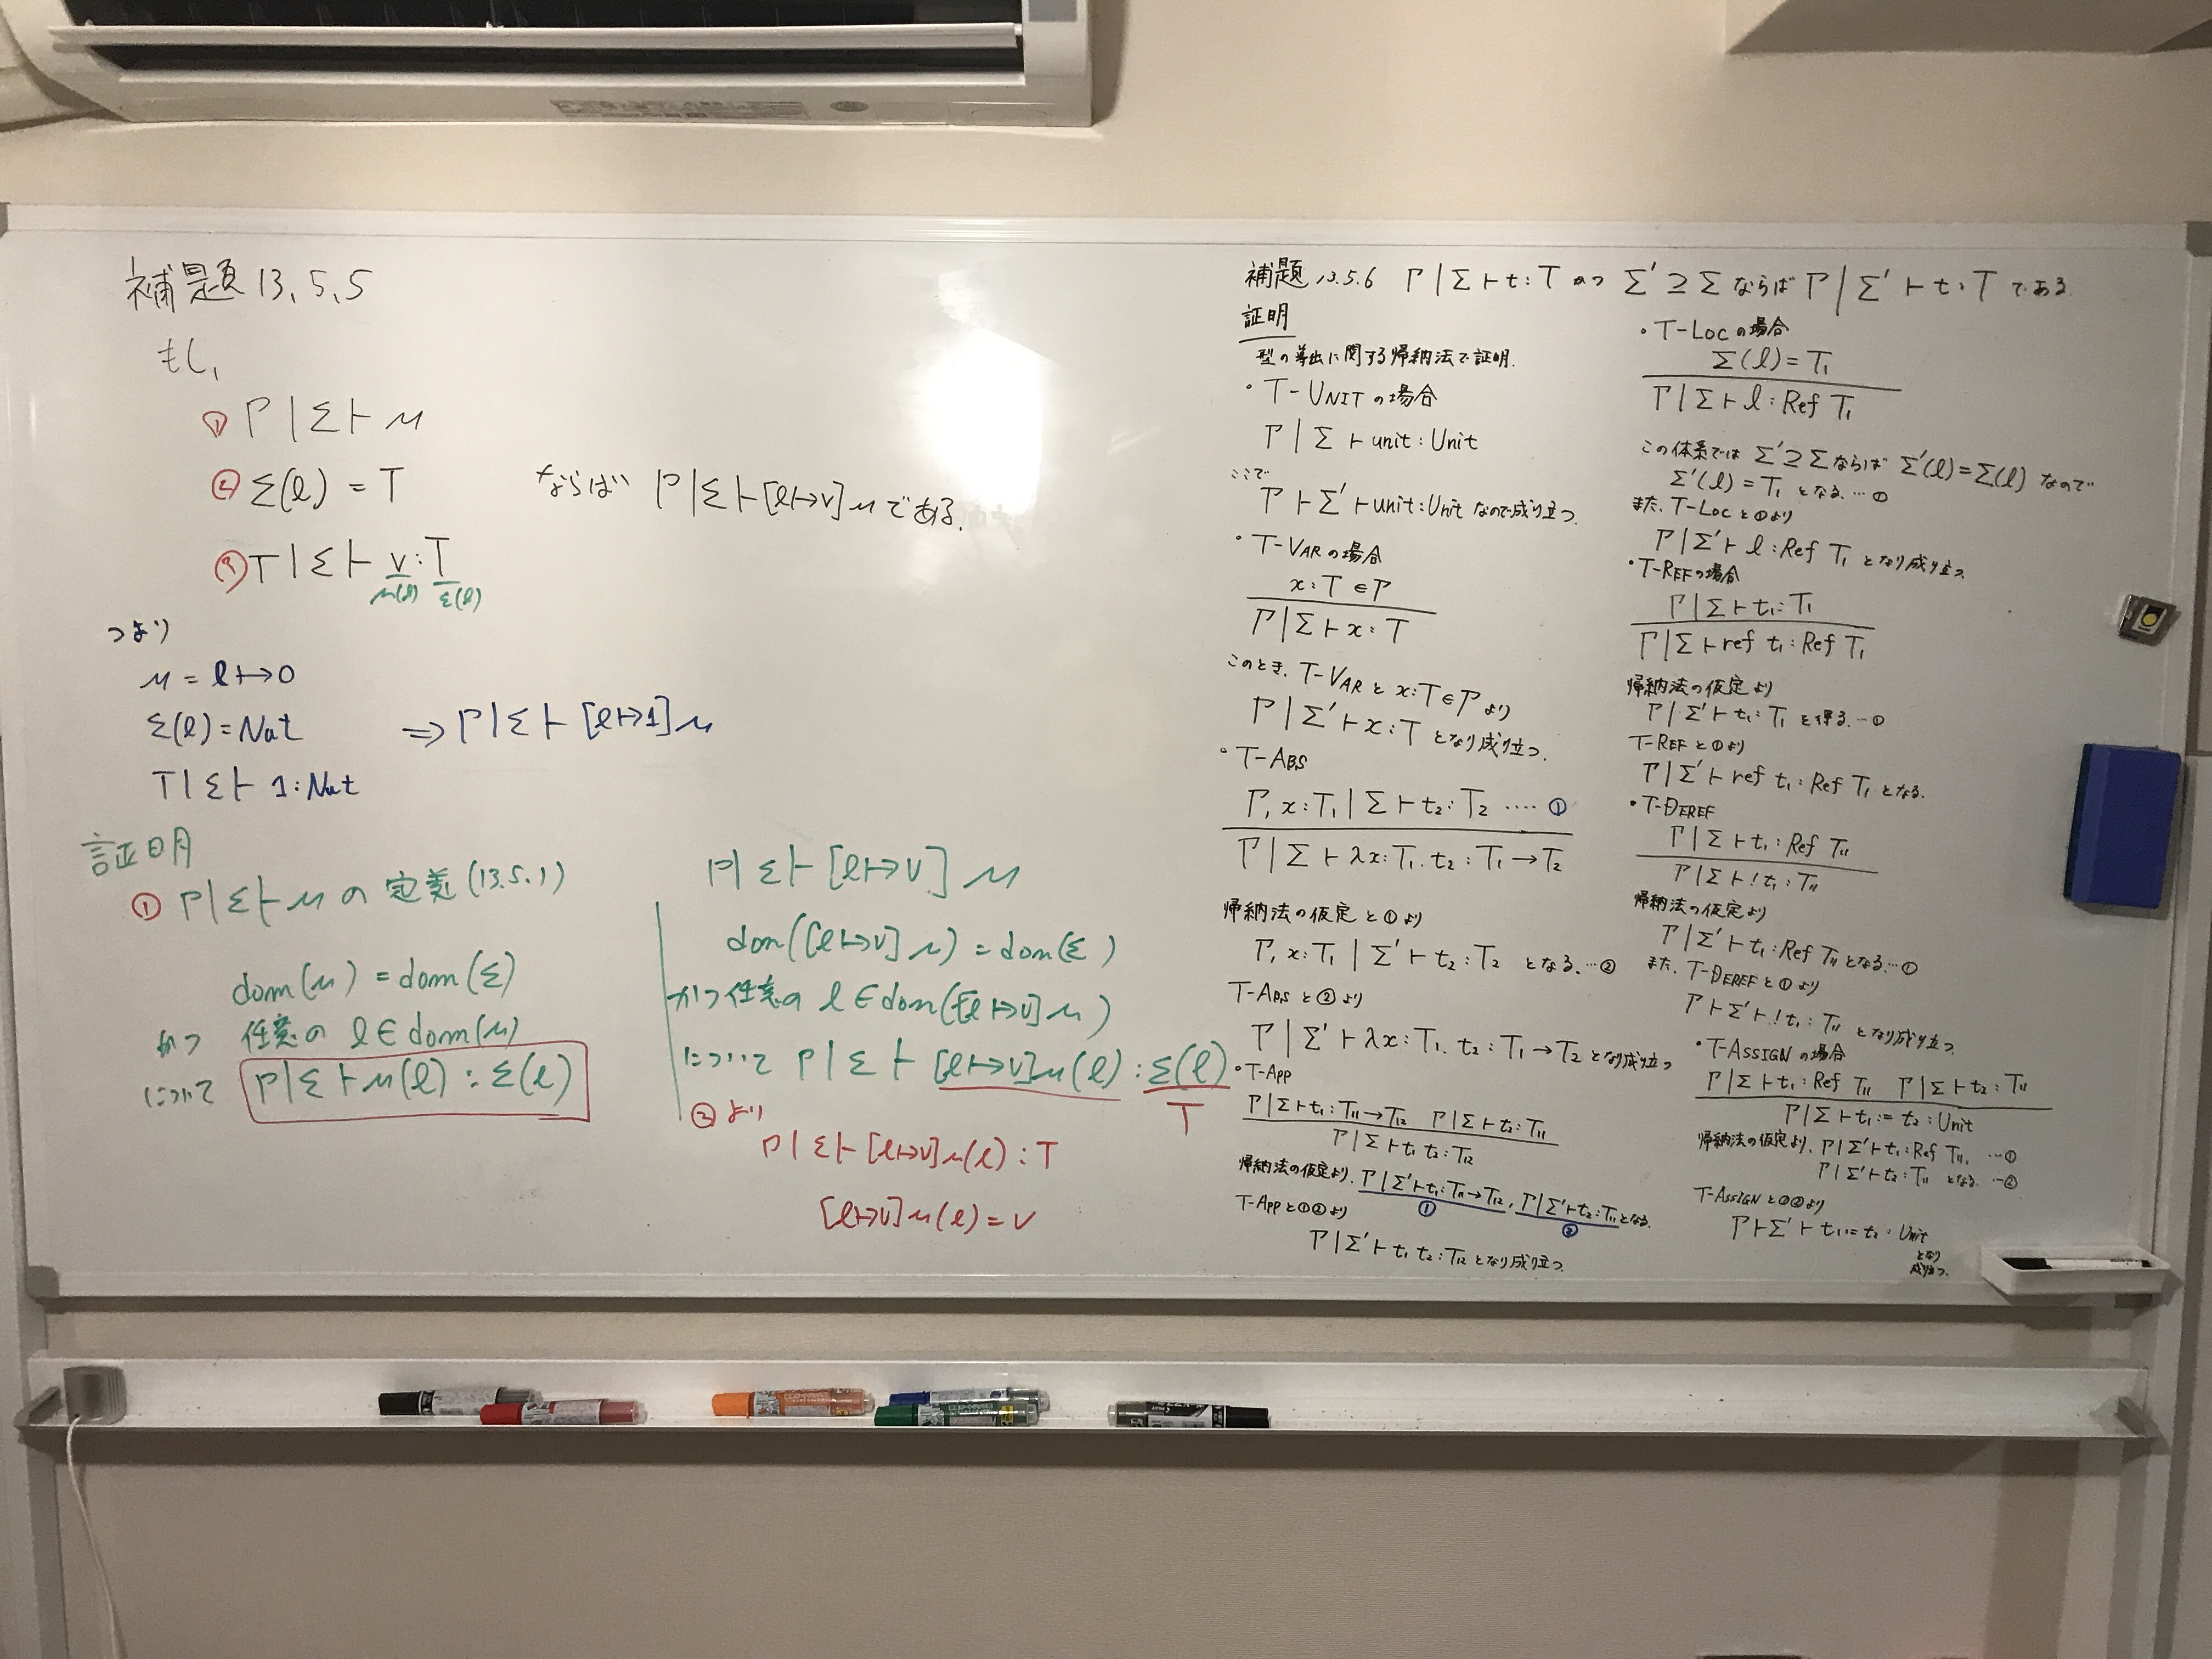 補題 13.5.5
もし,
① Γ | Σ ⊢ μ
② Σ(l) = T
ならば Γ | Σ ⊢ [l↦v]μ である.
③ Γ | Σ ⊢ v : T
μ(l) Σ(l)
つまり
μ = l ↦ 0
Σ(l) = Nat
⇒ Γ | Σ ⊢ [l↦1]μ
Γ | Σ ⊢ 1 : Nat
証明
① Γ | Σ ⊢ μ の 定義 (13.5.1)
dom(μ) = dom(Σ)
かつ 任意の l ∈ dom(μ)
について Γ | Σ ⊢ μ(l) : Σ(l)
Γ | Σ ⊢ [l↦v] μ
dom([l↦v] μ) = dom(Σ)
かつ 任意の l ∈ dom([l↦v] μ)
について Γ | Σ ⊢ [l↦v]μ(l) : Σ(l)
T
② より
Γ | Σ ⊢ [l↦v]μ(l) : T
[l↦v]μ(l) = v
補題 13.5.6 Γ | Σ ⊢ t : T かつ Σ' ⊇ Σ ならば Γ | Σ' ⊢ t : T である
証明
型の導出に関する帰納法で証明.
・T-UNIT の場合
Γ | Σ ⊢ unit : Unit
ここで
Γ ⊢ Σ' ⊢ unit : Unit なので成り立つ.
・T-VAR の場合
x : T ∈ Γ
Γ | Σ ⊢ x : T
このとき, T-VAR と x : T ∈ Γ より
Γ | Σ' ⊢ x : T となり成り立つ.
・T-ABS
Γ, x : T₁ | Σ ⊢ t₂ : T₂ …. ①
Γ | Σ ⊢ λx : T₁. t₂ : T₁ → T₂
帰納法の仮定と①より
Γ, x : T₁ | Σ' ⊢ t₂ : T₂ となる. …②
T-ABS と ② より
Γ | Σ' ⊢ λx : T₁. t₂ : T₁ → T₂ となり成り立つ
・T-APP
Γ | Σ ⊢ t₁ : T₁₁ → T₁₂ Γ | Σ ⊢ t₂ : T₁₁
Γ | Σ ⊢ t₁ t₂ : T₁₂
帰納法の仮定より, Γ | Σ' ⊢ t₁ : T₁₁ → T₁₂, Γ | Σ' ⊢ t₂ : T₁₁ となる.
① ②
T-APP と①②より
Γ | Σ' ⊢ t₁ t₂ : T₁₂ となり成り立つ.
・T-LOC の場合
Σ(l) = T₁
Γ | Σ ⊢ l : Ref T₁
この体系では Σ' ⊇ Σ ならば Σ'(l) = Σ(l) なので
Σ'(l) = T₁ となる. …①
また, T-LOC と①より
Γ | Σ' ⊢ l : Ref T₁ となり成り立つ.
・T-REF の場合
Γ | Σ ⊢ t₁ : T₁
Γ | Σ ⊢ ref t₁ : Ref T₁
帰納法の仮定より
Γ | Σ' ⊢ t₁ : T₁ を得る. …①
T-REF と①より
Γ | Σ' ⊢ ref t₁ : Ref T₁ となる.
・T-DEREF
Γ | Σ ⊢ t₁ : Ref T₁₁
Γ | Σ ⊢ ! t₁ : T₁₁
帰納法の仮定より
Γ | Σ' ⊢ t₁ : Ref T₁₁ となる. …①
また, T-DEREF と①より
Γ ⊢ Σ' ⊢ ! t₁ : T₁₁ となり成り立つ.
・T-ASSIGN の場合
Γ | Σ ⊢ t₁ : Ref T₁₁ Γ | Σ ⊢ t₂ : T₁₁
Γ | Σ ⊢ t₁ := t₂ : Unit
帰納法の仮定より, Γ | Σ' ⊢ t₁ : Ref T₁₁, …①
Γ | Σ' ⊢ t₂ : T₁₁ となる. …②
T-ASSIGN と①②より
Γ ⊢ Σ' ⊢ t₁ := t₂ : Unit
となり
成り立つ.